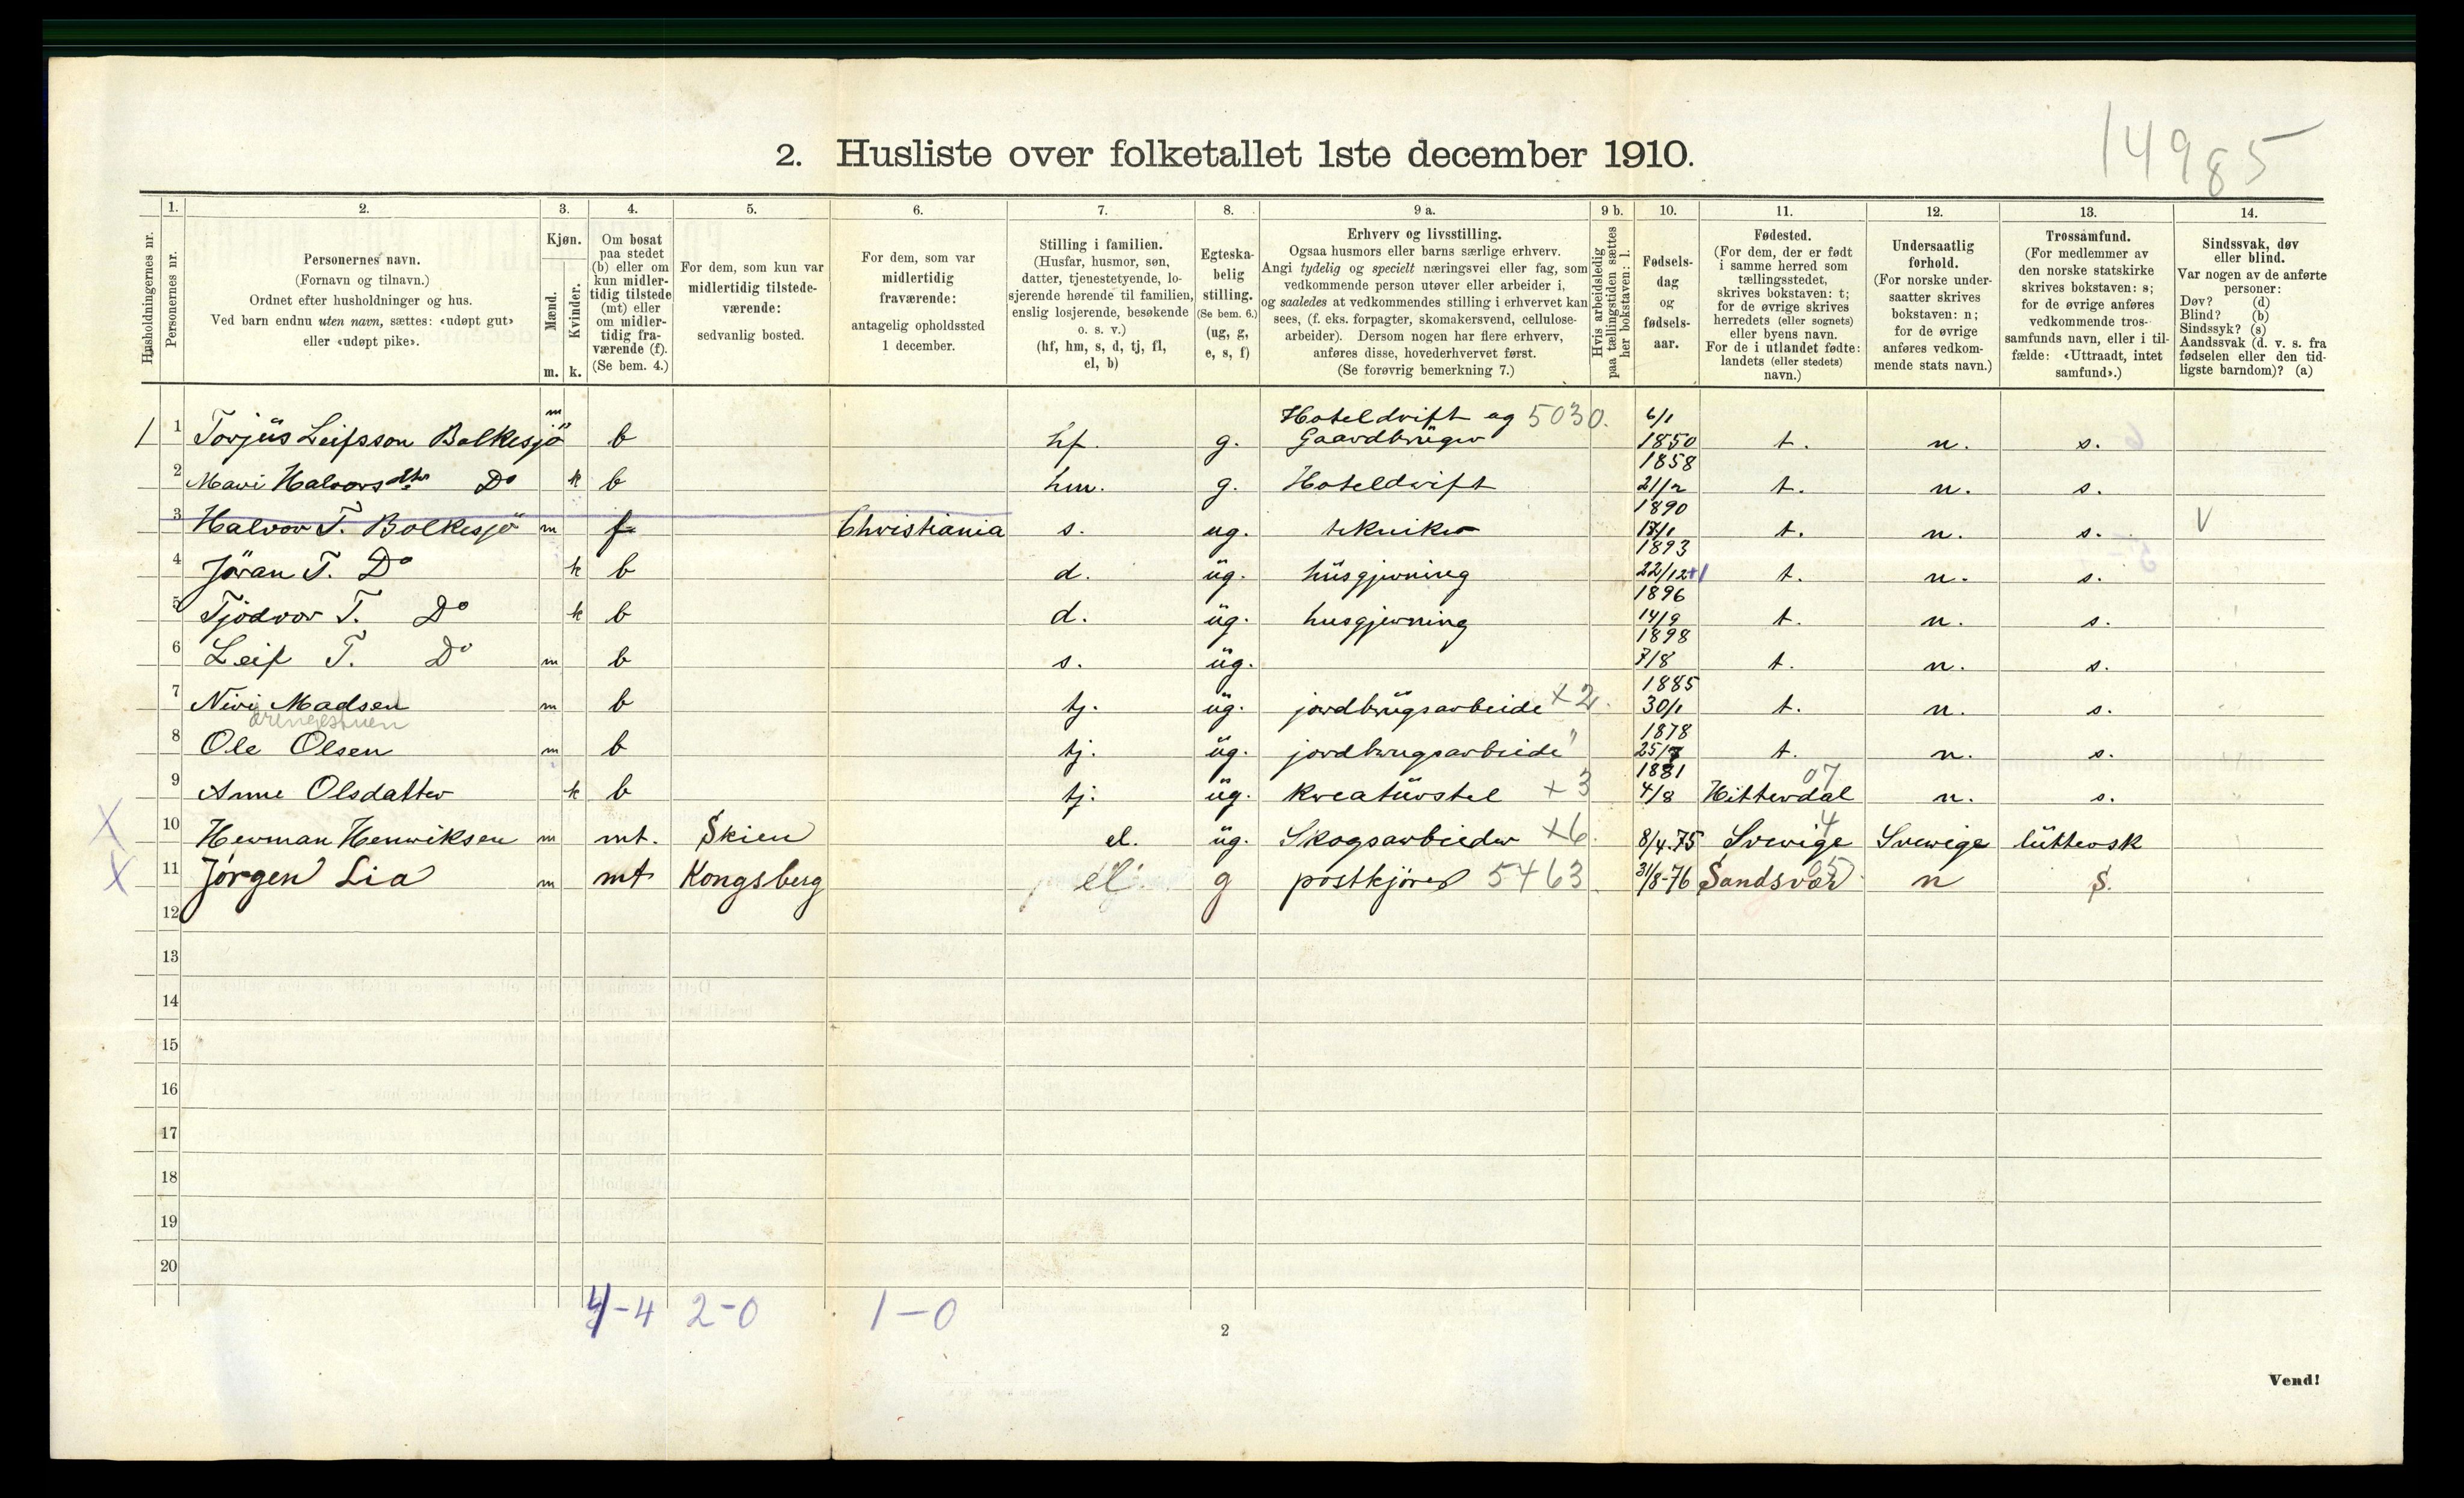 14985
2. Husliste over folketallet 1ste december 1910.
1. 2. 3. 4. 5. 6. 7. 8. 9 a. 9 b. 10. 11. 12. 13. 14.
Husholdningernes nr.
Personernes nr.
Personernes navn.
(Fornavn og tilnavn.)
Ordnet efter husholdninger og hus.
Ved barn endnu uten navn, sættes: «udøpt gut»
eller «udøpt pike».
Kjøn.
Mænd.
Kvinder.
m. k.
Om bosat
paa stedet
(b) eller om
kun midler-
tidig tilstede
(mt) eller
om midler-
tidig fra-
værende (f).
(Se bem. 4.)
For dem, som kun var
midlertidig tilstede-
værende:
sedvanlig bosted.
For dem, som var
midlertidig
fraværende:
antagelig opholdssted
1 december.
Stilling i familien.
(Husfar, husmor, søn,
datter, tjenestetyende, lo-
sjerende hørende til familien,
enslig losjerende, besøkende
o. s. v.)
(hf, hm, s, d, tj, fl,
el, b)
Egteska-
belig
stilling.
(Se bem. 6.)
(ug, g,
e, s, f)
Erhverv og livsstilling.
Ogsaa husmors eller barns særlige erhverv.
Angi tydelig og specielt næringsvei eller fag, som
vedkommende person utøver eller arbeider i,
og saaledes at vedkommendes stilling i erhvervet kan
sees, (f. eks. forpagter, skomakersvend, cellulose-
arbeider). Dersom nogen har flere erhverv,
anføres disse, hovederhvervet først.
(Se forøvrig bemerkning 7.)
Hvis arbeidsledig
paa tællingstiden sættes
her bokstaven: l.
Fødsels-
dag
og
fødsels-
aar.
Fødested.
(For dem, der er født
i samme herred som
tællingsstedet,
skrives bokstaven: t;
for de øvrige skrives
herredets (eller sognets)
eller byens navn.
For de i utlandet fødte:
landets (eller stedets)
navn.)
Undersaatlig
forhold.
(For norske under-
saatter skrives
bokstaven: n;
for de øvrige
anføres vedkom-
mende stats navn.)
Trossamfund.
(For medlemmer av
den norske statskirke
skrives bokstaven: s;
for de øvrige anføres
vedkommende tros-
samfunds navn, eller i til-
fælde: «Uttraadt, intet
samfund».)
Sindssvak, døv
eller blind.
Var nogen av de anførte
personer:
Døv? (d)
Blind? (b)
Sindssyk? (s)
Aandssvak (d. v. s. fra
fødselen eller den tid-
ligste barndom)? (a)
1 1 Torjüs Leifsson Bolkesjö m b hf. g. Hoteldrift og Gaardbrüger 5030. 6/1 1850 t. n. s.
2 Mari Halvorsdtr Do k b hm. g. Hoteldrift 1858 21/2 t. n. s.
3 Halvor T. Bolkesjö m f Christiania s. ug. tekniker 1890 17/1 t. n. s. V
4 Jöran T. Do k b d. üg. hüsgjerning 1893 22/12 +1 t. n. s.
5 Tjodvor T. Do k b d. üg. husgjerning 1896 14/9 t. n. s.
6 Leif T. Do m b s. üg. 1898 7/8 t. n. s.
7 Nivi Madsen m b tj. üg. jordbrügsarbeide +2. 1885 30/1 t. n. s.
8 Ole Olsen m b tj. üg. jordbrugsarbeide " 1878 25/7 t. n. s.
9 Anne Olsdatter k b tj. üg. kreatürstel +3 1881 4/8 Hitterdal 07 n. s.
X 10 Herman Henriksen m mt. Skien el. üg. Skogsarbeider +6. 8/4.75 Sverige 4 Sverige lüthersk
X 11 Jørgen Lia m mt Kongsberg el. g postkjører 5463 31/8-76 Sandsvær 05 n s.
12
13
14
15
16
17
18
19
20
4-4 2-0 1-0
2
Vend!